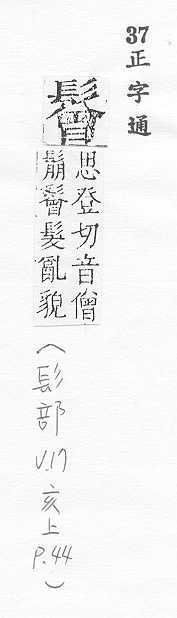 37
正字通
鬙
思登切音僧
鬅鬙髮亂貌
(髟部 V.17 亥上 P.44)